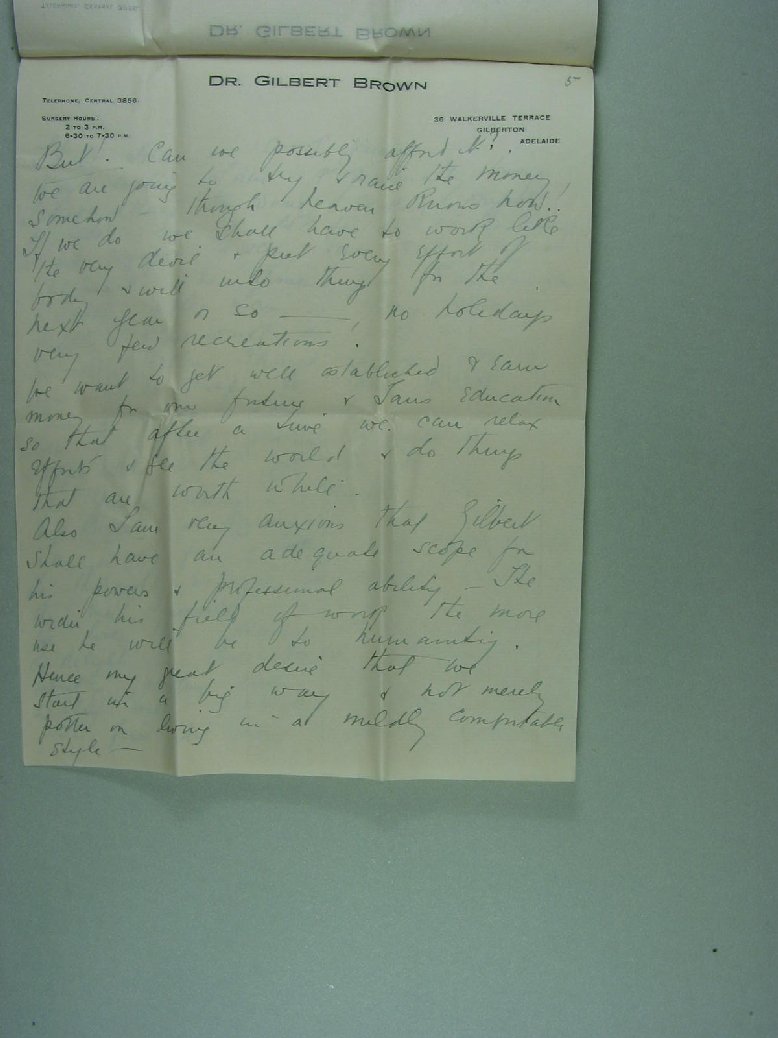 DR. GILBERT BROWN
5
TELEPHONE, CENTRAL 3858.
SURGERY HOURS:
2 TO 3 P.M.
6-30 TO 7-30 P.M.
36 WALKERVILLE TERRACE
GILBERTON
ADELAIDE
But! Can we possibly afford it?
We are going to try & raise the money
somehow though heaven knows how..
If we do we shall have to work like
the very devil & put every effort of
body & will into things for the
next year or so —, no holidays
very few recreations.
We want to get well established & earn
money for our future & Ians education
so that after a time we can relax
efforts & see the world & do things
that are worth while.
Also I am very anxious that Gilbert
shall have an adequate scope for
his powers & professional ability – The
wider his field of work the more
use he will be to humanity.
Hence my great desire that we
start in a big way & not merely
potter on living in a mildly comfortable
style —